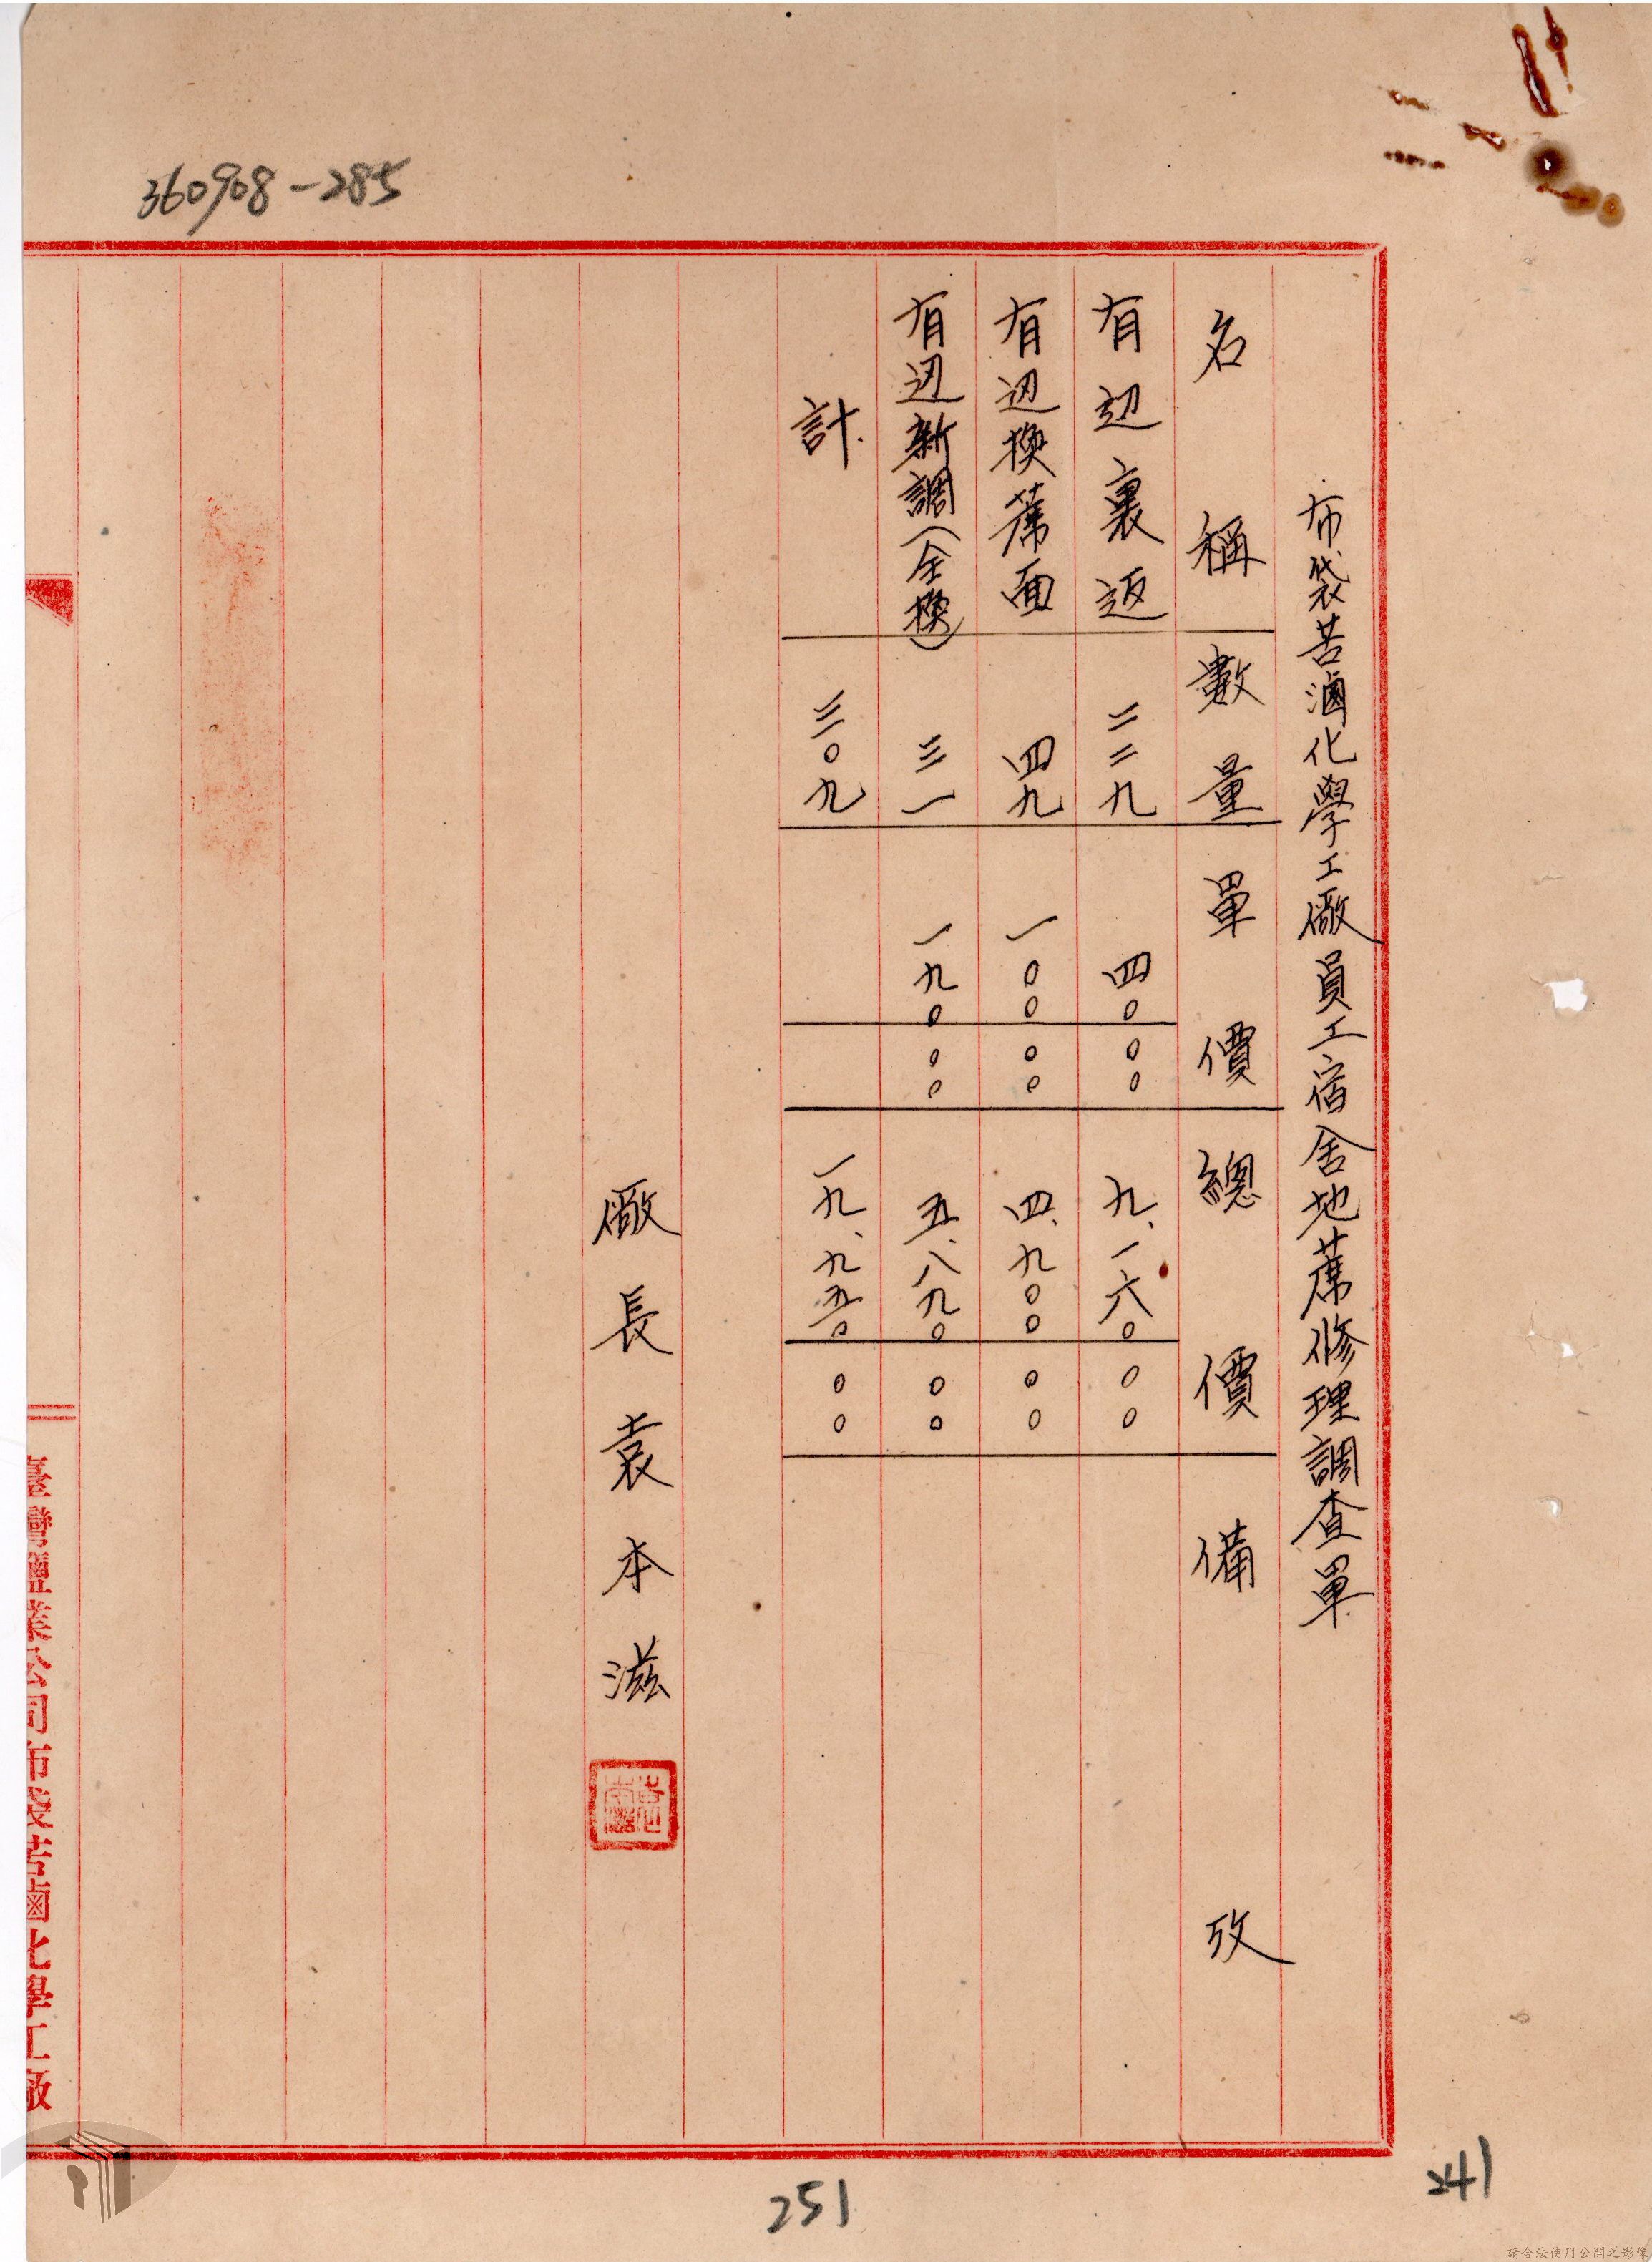 360908-285
布袋苦滷化學工廠員工宿舍地蓆修理調查單
名稱 數量 單價 總價 備攷
有辺裏返 二二九 四〇 〇〇 九、一六〇 〇〇
有辺換蓆面 四九 一〇〇 〇〇 四、九〇〇 〇〇
有辺新調(全換) 三一 一九〇 〇〇 五、八九〇 〇〇
計 三〇九 一九、九五〇 〇〇
廠長袁本滋
臺灣鹽業公司布袋苦滷化學工廠
251
241
請合法使用公開之影像